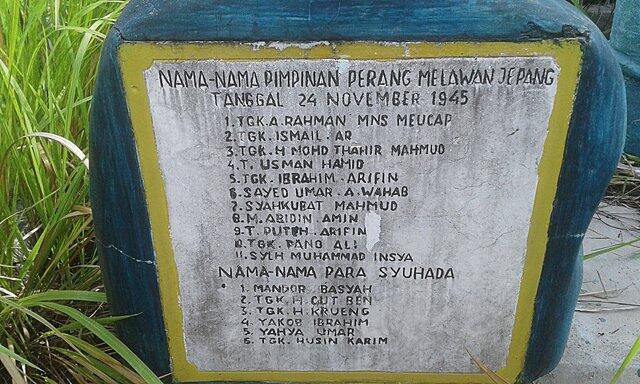 NAMA-NAMA PIMPINAN PERANG MELAWAN JEPANG
TANGGAL 24 NOVEMBER 1945
1. TGK.A.RAHMAN MNS MEUCAP
2. TGK. ISMAIL. AR
3. TGK. H MOHD THAHIR MAHMUD
4. T. USMAN HAMID
5. TGK. IBRAHIM. ARIFIN
6. SAYED UMAR. A. WAHAB
7. SYAHKUBAT MAHMUD
8. M. ABIDIN. AMIN
9. T. PUTEH. ARIFIN
10. TGK. PANG ALI
11. SYLH MUHAMMAD INSYA
NAMA-NAMA PARA SYUHADA
1. MANDOR BASYAH
2. TGK. H. CUT BEN
3. TGK. H. KRUENG
4. YAKOB IBRAHIM
5. YAHYA UMAR
6. TGK. HUSIN KARIM